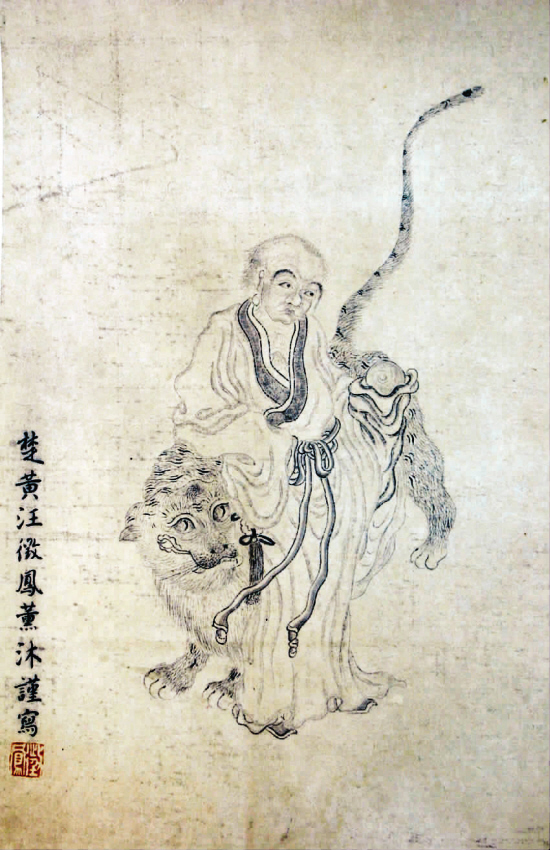 楚黄汪徵鳳薰沐謹寫